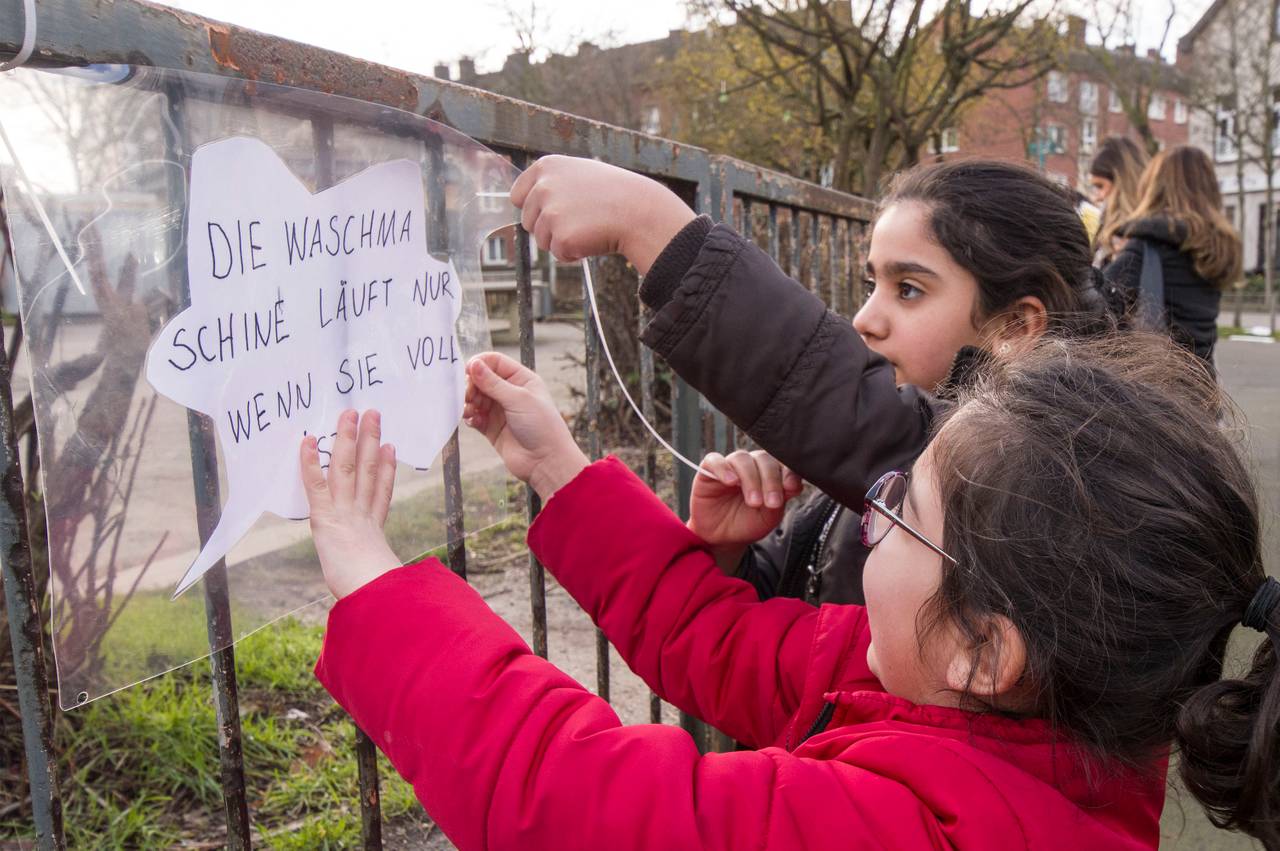 DIE WASCHMA
SCHINE LÄUFT NUR
WENN SIE VOLL